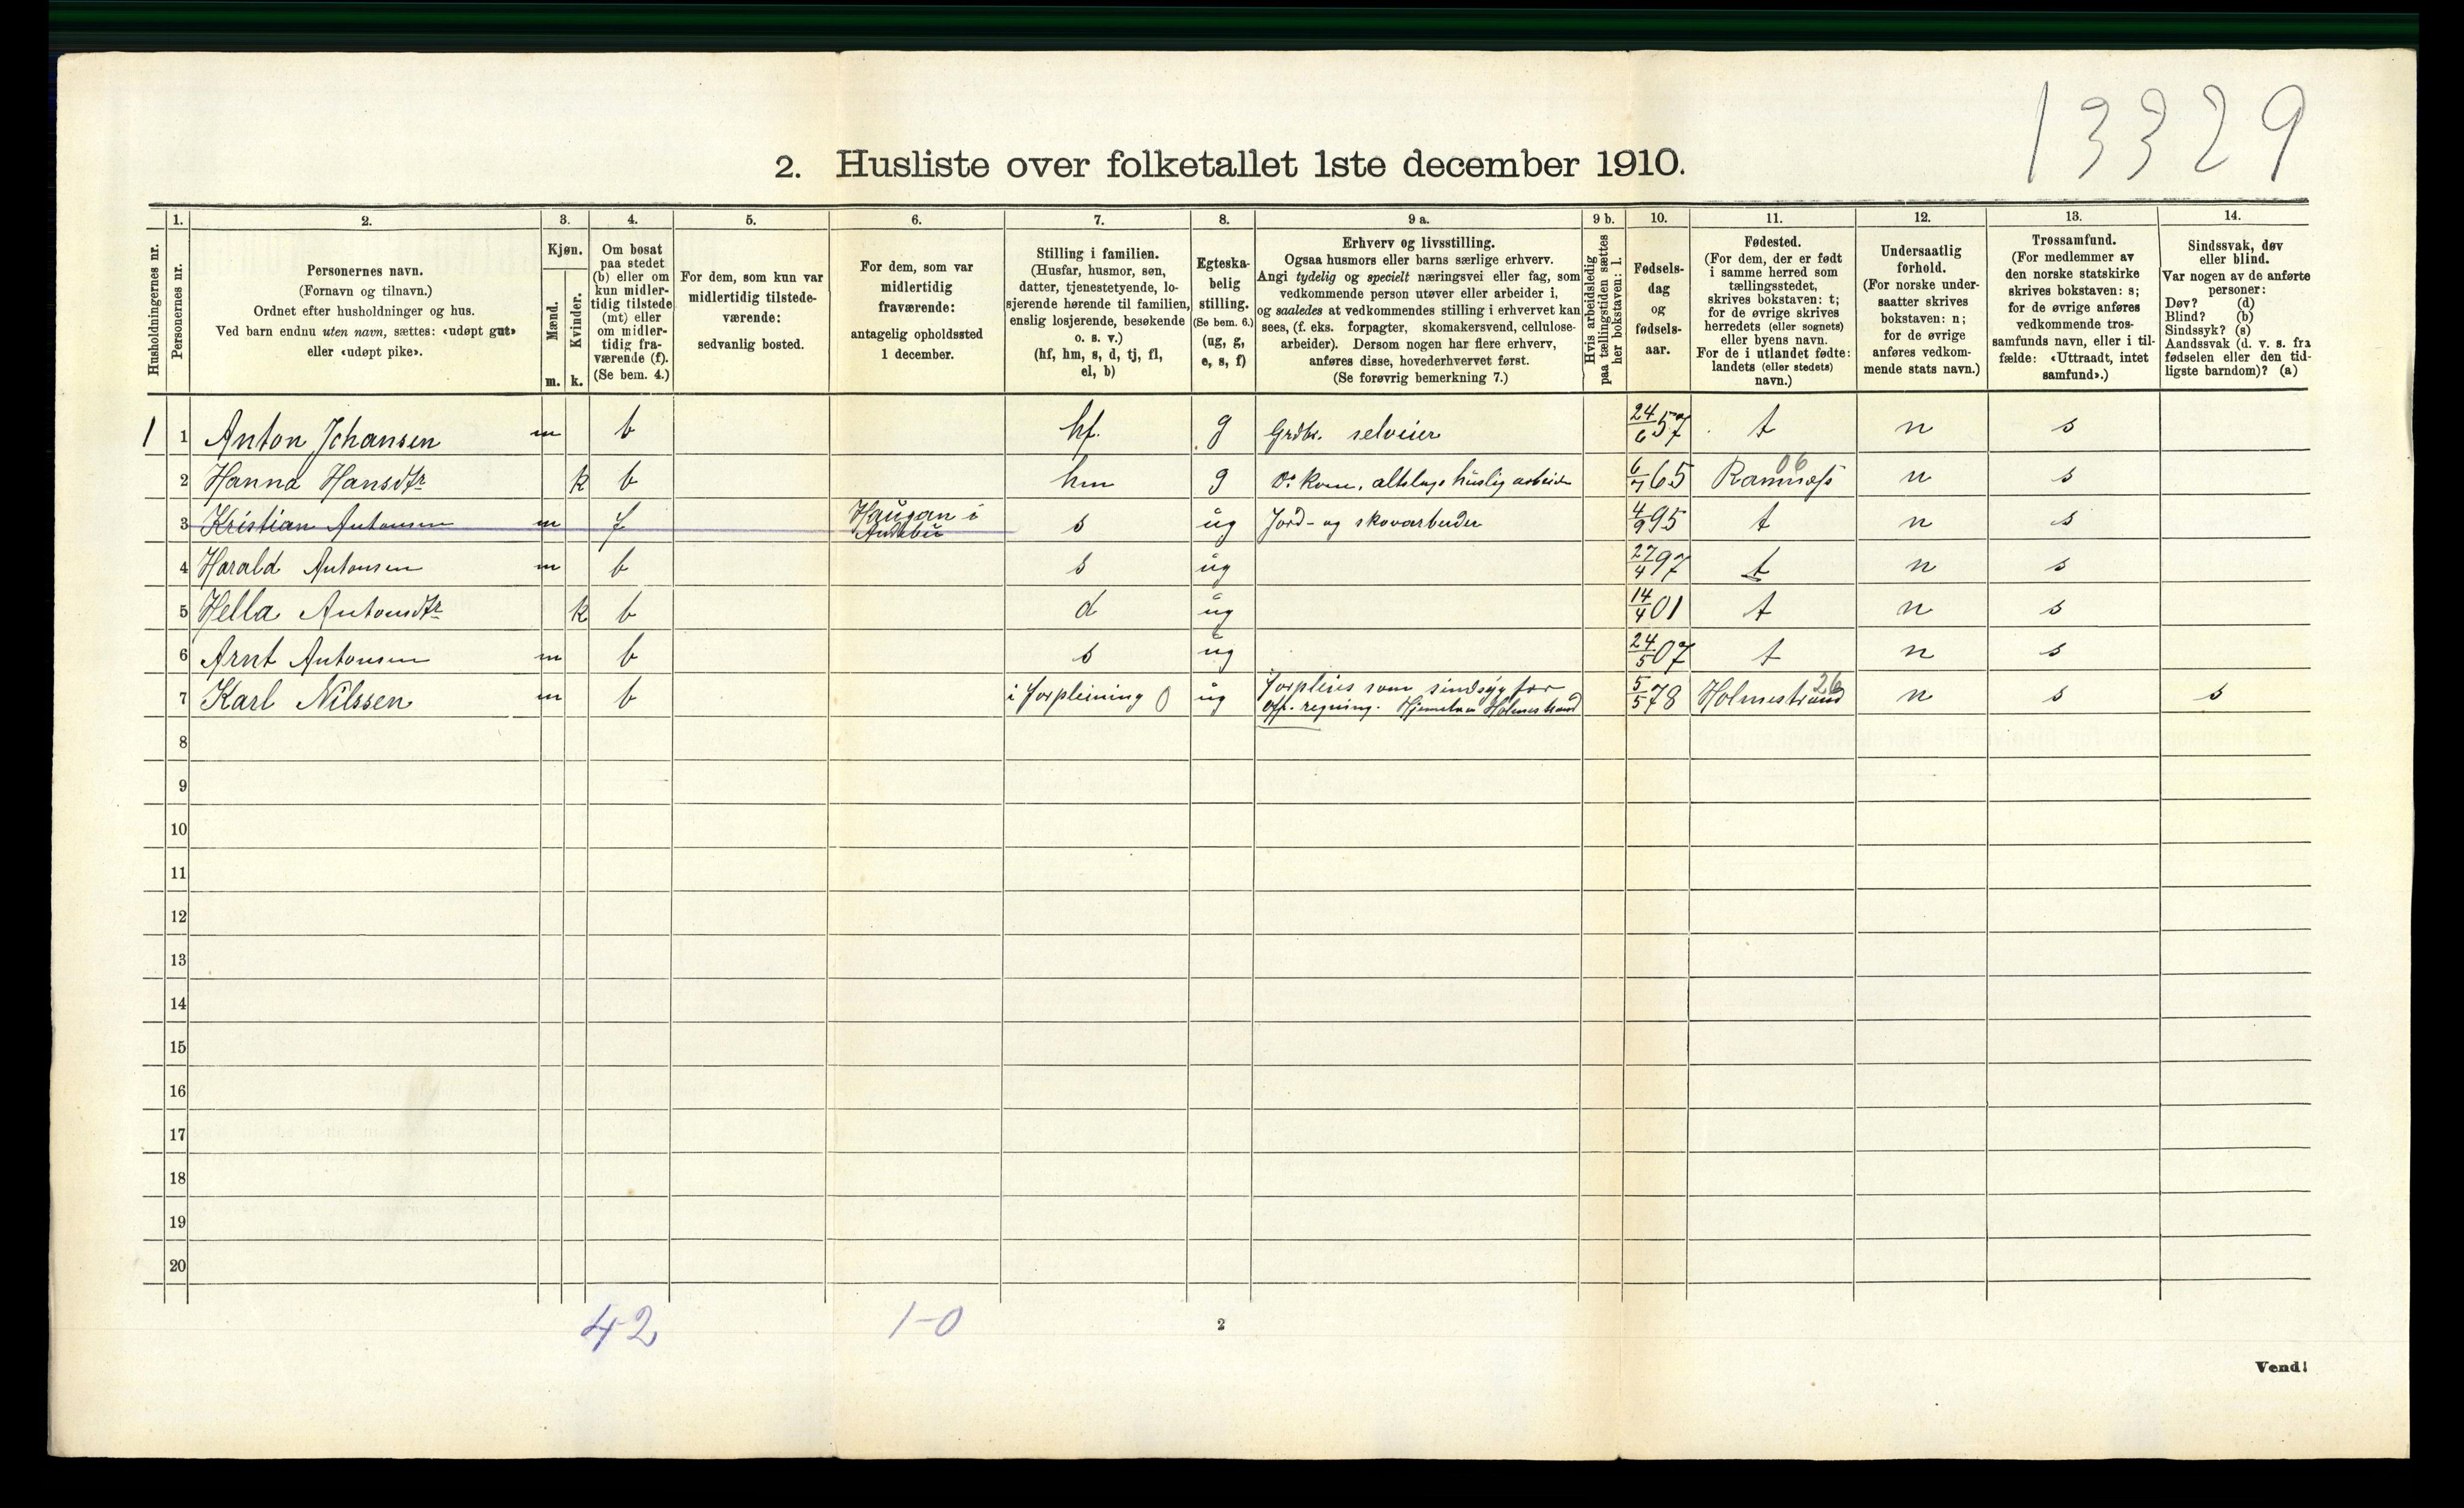 13329
2. Husliste over folketallet 1ste december 1910.
1. 2. 3. 4. 5. 6. 7. 8. 9 a. 9 b. 10. 11. 12. 13. 14.
Husholdningernes nr.
Personernes nr.
Personernes navn.
(Fornavn og tilnavn.)
Ordnet efter husholdninger og hus.
Ved barn endnu uten navn, sættes: «udøpt gut»
eller «udøpt pike».
Kjøn.
Mænd.
Kvinder.
m. k.
Om bosat
paa stedet
(b) eller om
kun midler-
tidig tilstede
(mt) eller
om midler-
tidig fra-
værende (f).
(Se bem. 4.)
For dem, som kun var
midlertidig tilstede-
værende:
sedvanlig bosted.
For dem, som var
midlertidig
fraværende:
antagelig opholdssted
1 december.
Stilling i familien.
(Husfar, husmor, søn,
datter, tjenestetyende, lo-
sjerende hørende til familien,
enslig losjerende, besøkende
o. s. v.)
(hf, hm, s, d, tj, fl,
el, b)
Egteska-
belig
stilling.
(Se bem. 6.)
(ug, g,
e, s, f)
Erhverv og livsstilling.
Ogsaa husmors eller barns særlige erhverv.
Angi tydelig og specielt næringsvei eller fag, som
vedkommende person utøver eller arbeider i,
og saaledes at vedkommendes stilling i erhvervet kan
sees, (f. eks. forpagter, skomakersvend, cellulose-
arbeider). Dersom nogen har flere erhverv,
anføres disse, hovederhvervet først.
(Se forøvrig bemerkning 7.)
Hvis arbeidsledig
paa tællingstiden sættes
her bokstaven: l.
Fødsels-
dag
og
fødsels-
aar.
Fødested.
(For dem, der er født
i samme herred som
tællingsstedet,
skrives bokstaven: t;
for de øvrige skrives
herredets (eller sognets)
eller byens navn.
For de i utlandet fødte:
landets (eller stedets)
navn.)
Undersaatlig
forhold.
(For norske under-
saatter skrives
bokstaven: n;
for de øvrige
anføres vedkom-
mende stats navn.)
Trossamfund.
(For medlemmer av
den norske statskirke
skrives bokstaven: s;
for de øvrige anføres
vedkommende tros-
samfunds navn, eller i til-
fælde: «Uttraadt, intet
samfund».)
Sindssvak, døv
eller blind.
Var nogen av de anførte
personer:
Døv? (d)
Blind? (b)
Sindssyk? (s)
Aandssvak (d. v. s. fra
fødselen eller den tid-
ligste barndom)? (a)
1 1 Anton Johansen m b hf. g Grdbr. selveier 24/6 57 t n s
2 Hanna Hansdtr k b hm g huslig arbeide 6/7 65 Ramnæs 06 n s
3 Kristian Antonsen m f Haugan i Andebu s ug Jord- og skovarbeider 4/9 95 t n s
4 Harald Antonsen m b s ug 27/4 97 t n s
5 Hella Antonsdtr k b d ug 14/4 01 t n s
6 Arnt Antonsen m b s ug 24/5 07 t n s
7 Karl Nilssen m b i forpleining 0 ug Forpleies som sindsyg for
off. regning. Holmestrand 5/5 78 Holmestrand 26 n s s
8
9
10
11
12
13
14
15
16
17
18
19
20
42 1-0 2
Vend!